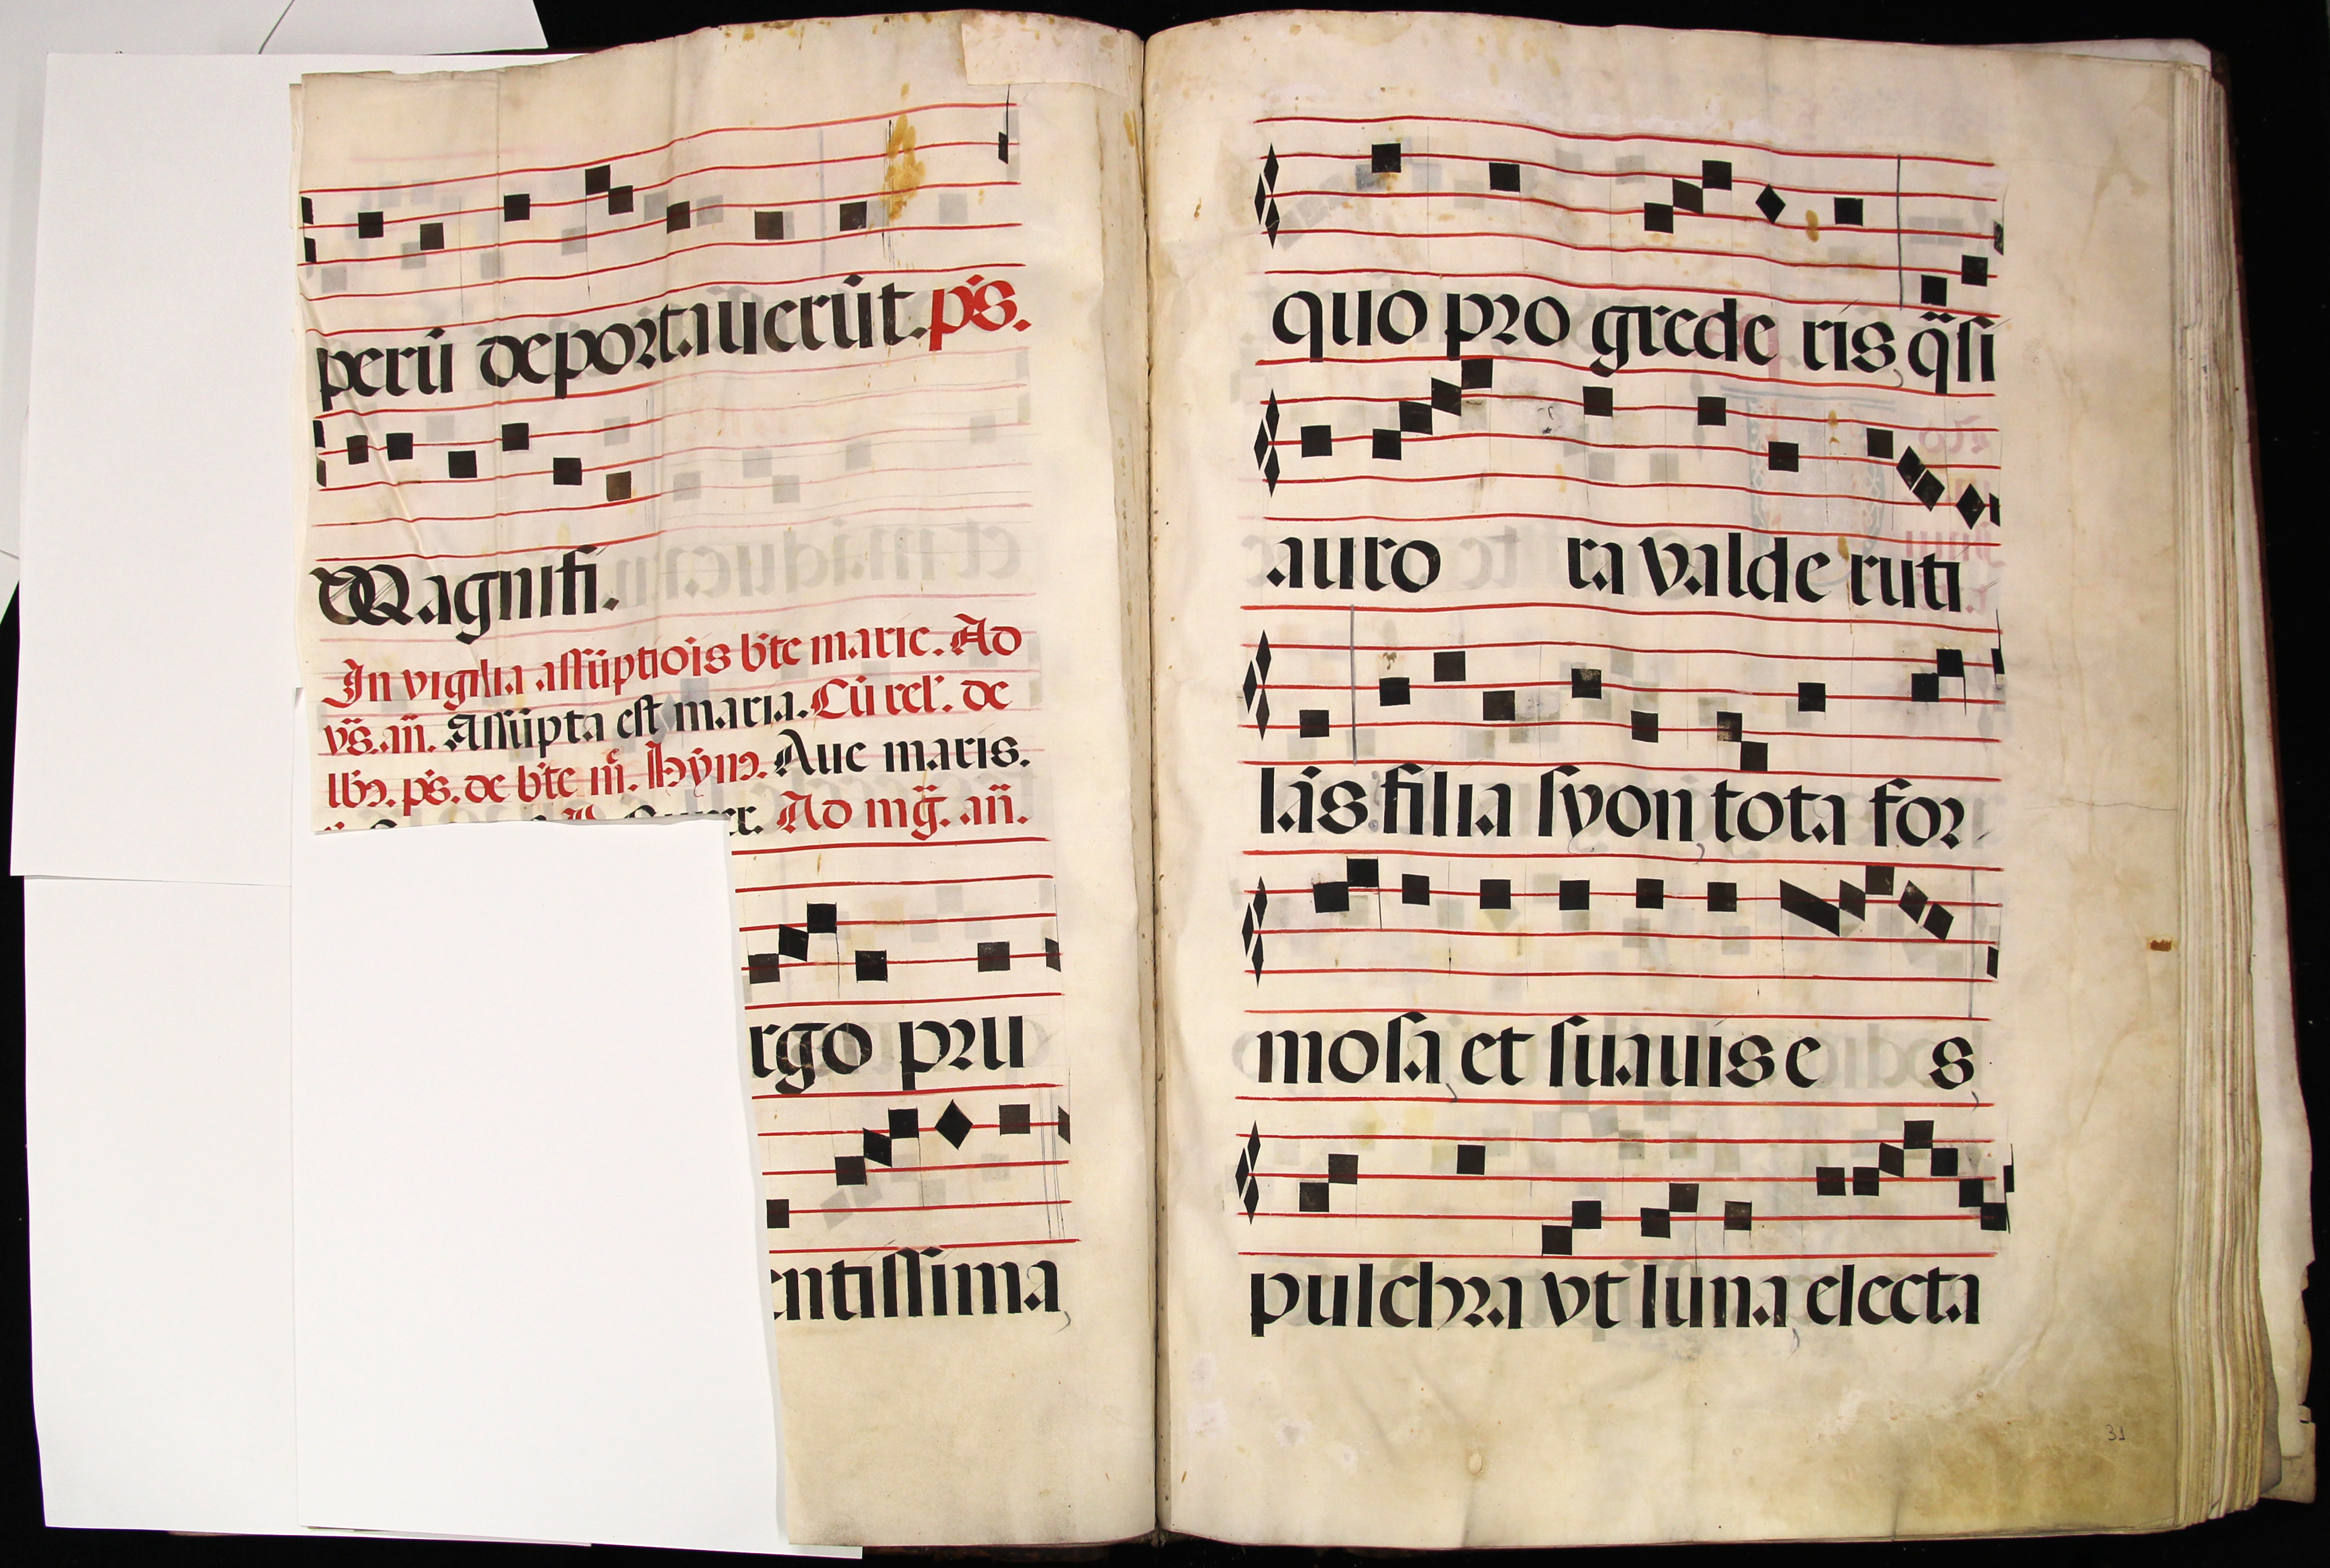 perū deportauerūt. ps.
Magnifi.
In vigilia assūptiōis bte marie. Ad
vs̄. an̄. Assūpta est maria. Cū rel. de
lbꝫ. ps. de bte m̄. Hym̄. Aue maris.
Ad mḡ. an̄.
rgo pru
entissima,
quo pro grede ris, q̄si
auro ra valde ruti
lās filia syon, tota for
mosa, et suauis e s,
pulchra vt luna, electa
31